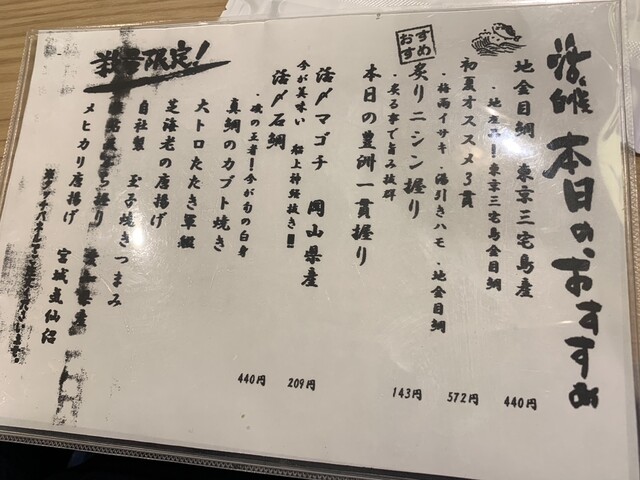 本日のおすすめ
地金目鯛 東京三宅島産 440円
・地産品！東京三宅島金目鯛
初夏オススメ3貫 572円
・梅雨イサキ・湯引きハモ・地金目鯛
おすすめ
炙りニシン握り 143円
・炙る事で旨み抜群
本日の豊洲一貫握り
活〆マゴチ 岡山県産 209円
今が美味い 船上神経抜き!!
活〆石鯛 440円
・磯の王者！今が旬の白身
真鯛のカブト焼き
大トロたたき軍艦
芝海老の唐揚げ
自社製 玉子焼きつまみ
握り
メヒカリ唐揚げ 宮城気仙沼
限定！